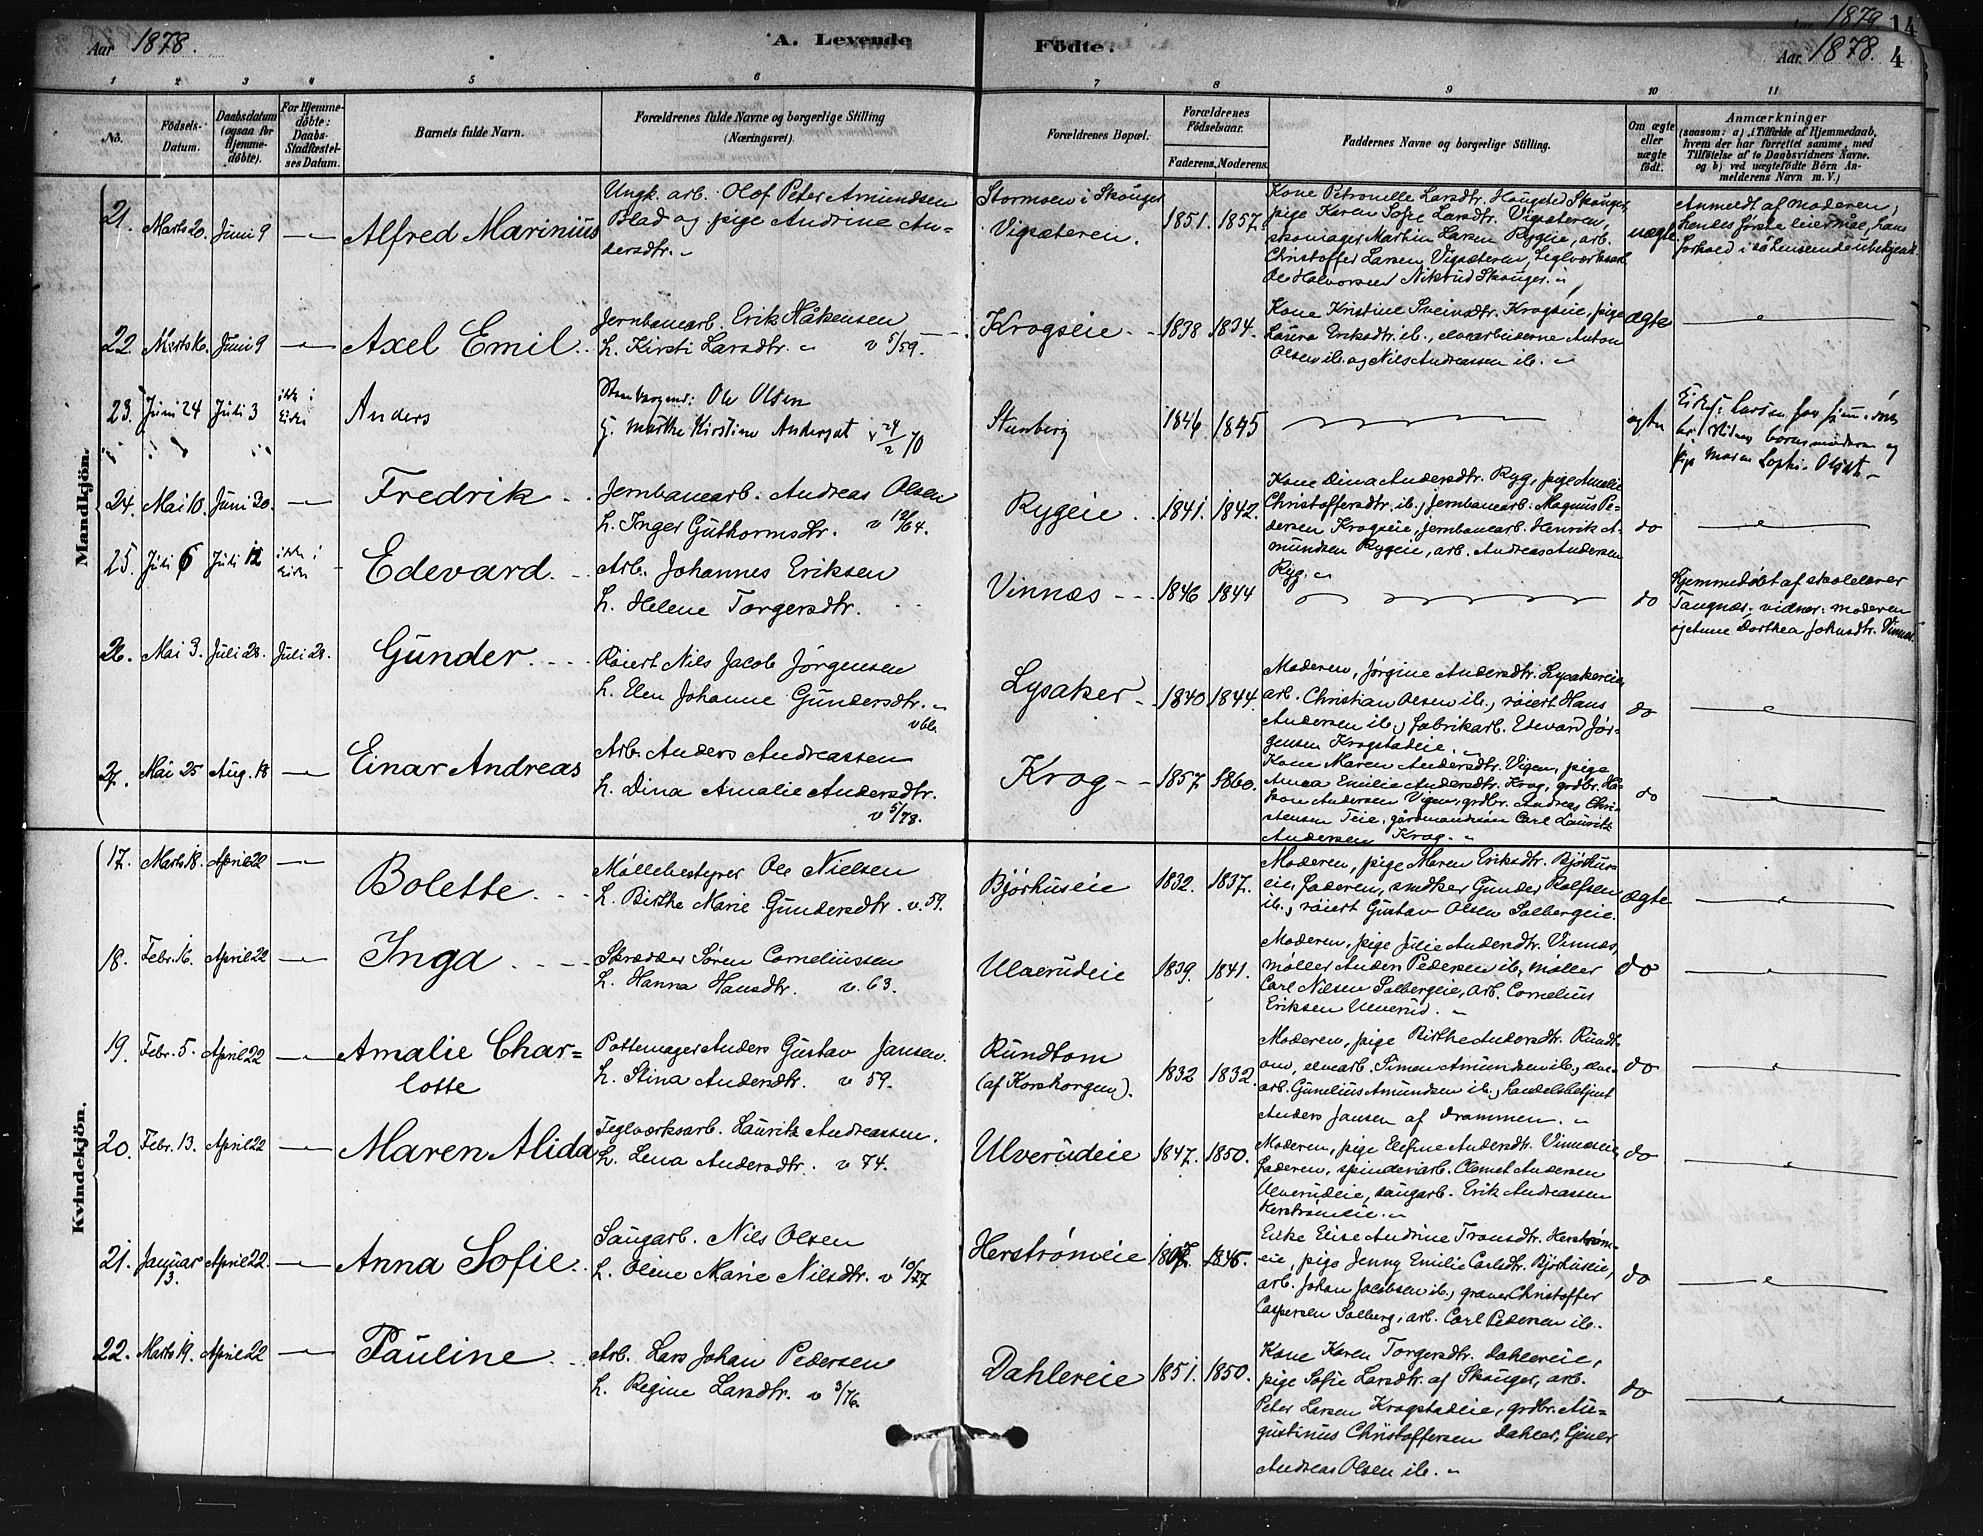 Aar 1878.
A. Levende
Födte.
1879
14
Aar 1878. 4
1 2 3 4 5 6 7 8 9 10 11
No.
Födsels-
Datum.
Daabsdatum
(ogsaa for
Hjemme-
döbte).
For Hjemme-
döbte:
Daabs-
Stadfæstel-
ses Datum.
Barnets fulde Navn.
Forældrenes fulde Navne og borgerlige Stilling
(Næringsvei).
Forældrenes Bopæl.
Forældrenes
Födselsaar.
Faderens. Moderens.
Faddernes Navne og borgerlige Stilling.
Om ægte
eller
uægte
födt.
Anmærkninger
(saasom: a) i Tilfælde af Hjemmedaab,
hvem der har forrettet samme, med
Tilföielse af to Daabsvidners Navne.
og b) ved uægtefödte Börn An-
melderens Navn m. V.)
Mandkjön.
21. Marts 20. Juni 9 Alfred Marinius
Ungk. arb. Olof Peter Amundsen
Blad og pige Andrine An-
dersdtr.
Stormoen i Skouger
Vigsæteren.
1851. 1857.
Kone Petronelle Larsdtr. Haugsted Skouger,
pige Karen Sofie Larsdtr. Vigsæteren,
skomager Martin Larsen Rygeie, arb.
Christoffer Larsen Vigsæteren, Teglværksarb.
Ole Halvorsen Nikerud Skouger.
uægte
Anmeldt af moderen;
hendes første leiermåe, hans
forhold i så henseende ubekjendt.
22 Marts 10. Juni 9 Axel Emil
Jernbanearb. Erik Håkensen
h. Kirsti Larsdtr. v 5/59.
Krogseie
1838 1834.
Kone Kristine Sveinsdtr. Krogseie, pige
Laura Eriksdtr. ib., elvearbeiderne Anton
Olsen ib. og Nils Andreassen ib.
ægte
23. Juni 24 Juli 3
ikke i
Kirke
Anders
Ole Olsen
h. Marthe Kirstine Andersdt v 24/2 70
Stenberg
1846. 1845
ægte
24. Mai 10. Juni 30. Fredrik
Jernbanearb. Andreas Olsen
h. Inger Guthormsdtr. v 12/64.
Rygeie
1841. 1842.
Kone Dina Andersdtr. Ryg, pige Amalie
Christoffersdtr. ib., jernbanearb. Magnus Pe-
dersen Krogseie, jernbanearb. Henrik A-
mundsen Rygeie, arb. Andreas Andersen
Ryg.
do
25. Juli 6 Juli 12
ikke i
Kirke
Edevard.
Arb. Johannes Eriksen
h. Helene Torgersdtr.
Vinnæs
1846 1844
do
Hjemmedøbt af skolelærer
Tangnæs. vidner: moderen
og Anne Dorthea Johnsdtr. Vinnæs
26. Mai 3. Juli 28. Juli 28. Gunder
Røiert Nils Jacob Jørgensen
h. Elen Johanne Gundersdtr.
v 66.
Lysaker
1840 1844.
Moderen, Jørgine Andersdtr. Lysakereie,
arb. Christian Olsen ib., røiert Hans
Andersen ib., fabrikarb. Edevard Jør-
gensen Krogstadeie.
do
27. Mai 25 Aug. 18 Einar Andreas
Arb. Anders Andreassen
h. Dina Amalie Andersdtr.
v 5/78.
Krog
1857 1860.
Kone Maren Andersdtr. Vigen, pige
Anna Emilie Andersdtr. Krog, grdbr. Hå-
kon Andersen Vigen, grdbr. Andreas Chri-
stensen Teie, gårdmandssøn Carl Lauritz
Andersen Krog.
do
Kvindekjön.
17. Marts 18. April 22 Bolette
Møllebestyrer Ole Nielsen
h. Birthe Marie Gundersdtr. v. 59.
Bjørhuseie
1832. 1837.
Moderen, pige Maren Eriksdtr. Bjørhus-
eie, faderen, snedker Gunder Rolfsen
ib., røiert Gustav Olsen Solbergeie.
ægte
18. Febr. 16. April 22 Inga
Skrædder Søren Corneliussen
h. Hanna Hansdtr. v. 63.
Ulverudeie
1839. 1841.
Moderen, pige Julie Andersdtr. Vinnæs,
møller Anders Pedersen ib., møller
Carl Nilsen Solbergeie, arb. Cornelius
Eriksen Ulverud.
do
19. Febr. 5. April 22 Amalie Char-
lotte
Pottemager Anders Gustav Jansen.
h. Stina Andersdtr. v 59.
Rundtom
(af Korskorgen).
1832 1832.
Moderen, pige Birthe Andersdtr. Rundt-
om, elvearb. Simon Amundsen ib., elve-
arb. Gunelius Amundsen ib., handelsbetjent
Anders Jansen af Drammen.
do
20. Febr. 13. April 22 Maren Alida
Teglværksarb. Lauritz Andreassen.
h. Lena Andersdtr. v 74.
Ulverudeie
1847. 1850.
Moderen, pige Elefine Andersdtr. Vinnæseie,
faderen, spinderiarb. Clemet Andersen
Ulverudeie, saugarb. Erik Andreassen
Herstrømeie.
do
21. Januar
13. April 22. Anna Sofie
Saugarb. Nils Olsen
h. Oline Marie Nilsdtr. v 10/77
Herstrømeie
1845.
Enke Elise Andrine Fransdtr. Herstrøm-
eie, pige Jenny Emilie Carlsdtr. Bjørhuseie,
arb. Johan Jacobsen ib., graver Christoffer
Caspersen Solberg, arb. Carl Pedersen ib.
do
22. Marts 19. April 22 Pauline
Arb. Lars Johan Pedersen
h. Regine Larsdtr. v 3/76.
Dahlereie
1851. 1850.
Kone Karen Torgersdtr. Dahlereie,
pige Sofie Larsdtr. af Skouger, arb.
Peter Larsen Krogstadeie, grdbr. Au-
gustinus Christoffersen Dahler, Gjener
Andreas Olsen ib.
do